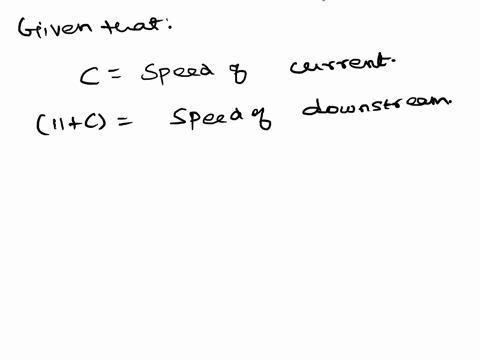 Given that:
C = Speed of current.
(11+C) = Speed of downstream.